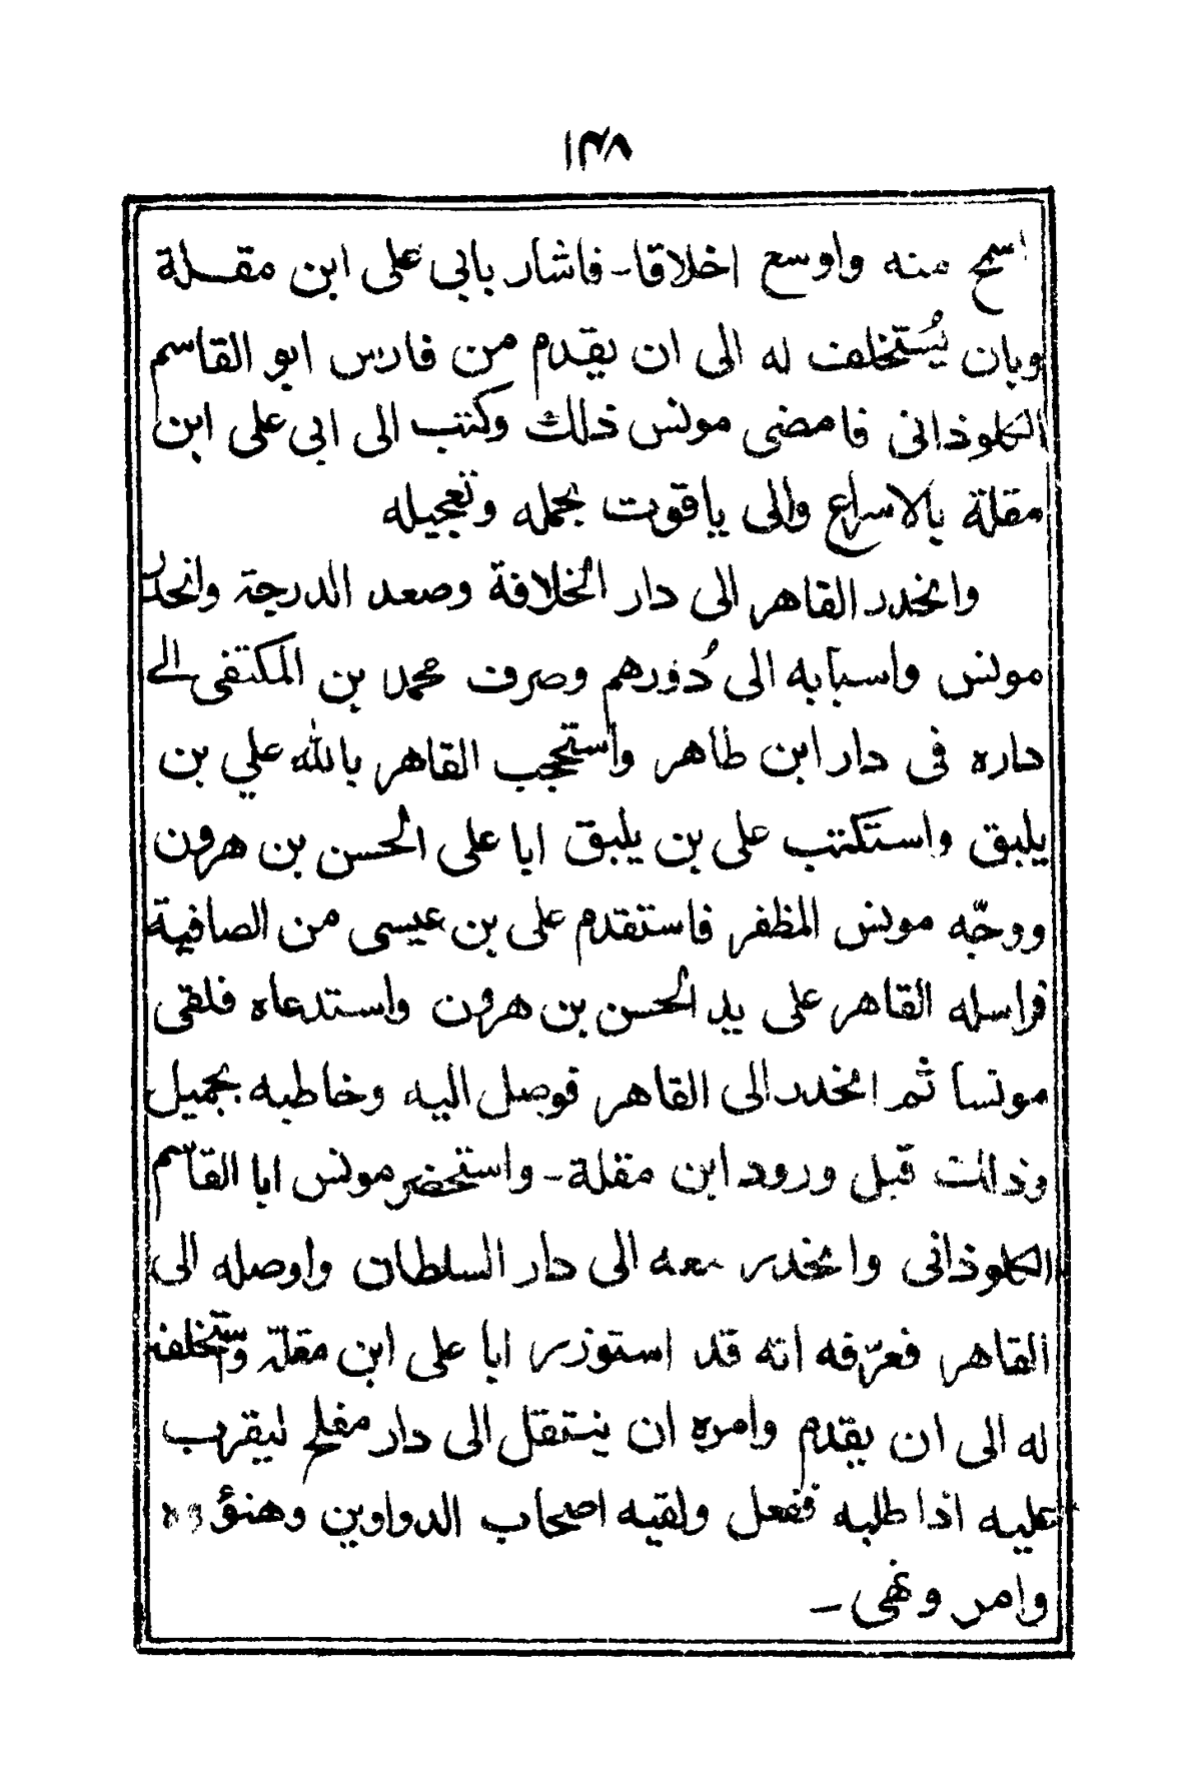 ١٣٨
اسمح منه واوسع اخلاقا - فاشار بابي على ابن مقلة
وبان يُستخلف له الى ان يقدم من فارس ابو القاسم
الكلوذانى فامضى مونس ذلك وكتب الى ابى على ابن
مقلة بالاسراع والى ياقوت بحمله وتعجيله
وانحدر القاهر الى دار الخلافة وصعد الدرجة وانحدر
مونس واسبابه الى دُورهم وصرف محمد بن المكتفى الى
داره فى دار ابن طاهر واستحجب القاهر بالله علي بن
يلبق واستكتب على بن يلبق ابا على الحسن بن هرون
ووجّه مونس المظفر فاستقدم على بن عيسى من الصافية
فراسله القاهر على يد الحسن بن هرون واستدعاه فلقى
مونسا ثم انحدر الى القاهر فوصل اليه وخاطبه بجميل
وذلك قبل ورود ابن مقلة - واستحضر مونس ابا القاسم
الكلوذانى وانحدر معه الى دار السلطان واوصله الى
القاهر فعرّفه انه قد استوزر ابا على ابن مقلة واستخلفه
له الى ان يقدم وامره ان ينتقل الى دار مفلح ليقرب
عليه اذا طلبه ففعل ولقيه اصحاب الدواوين وهنؤوه
وامر ونهى -